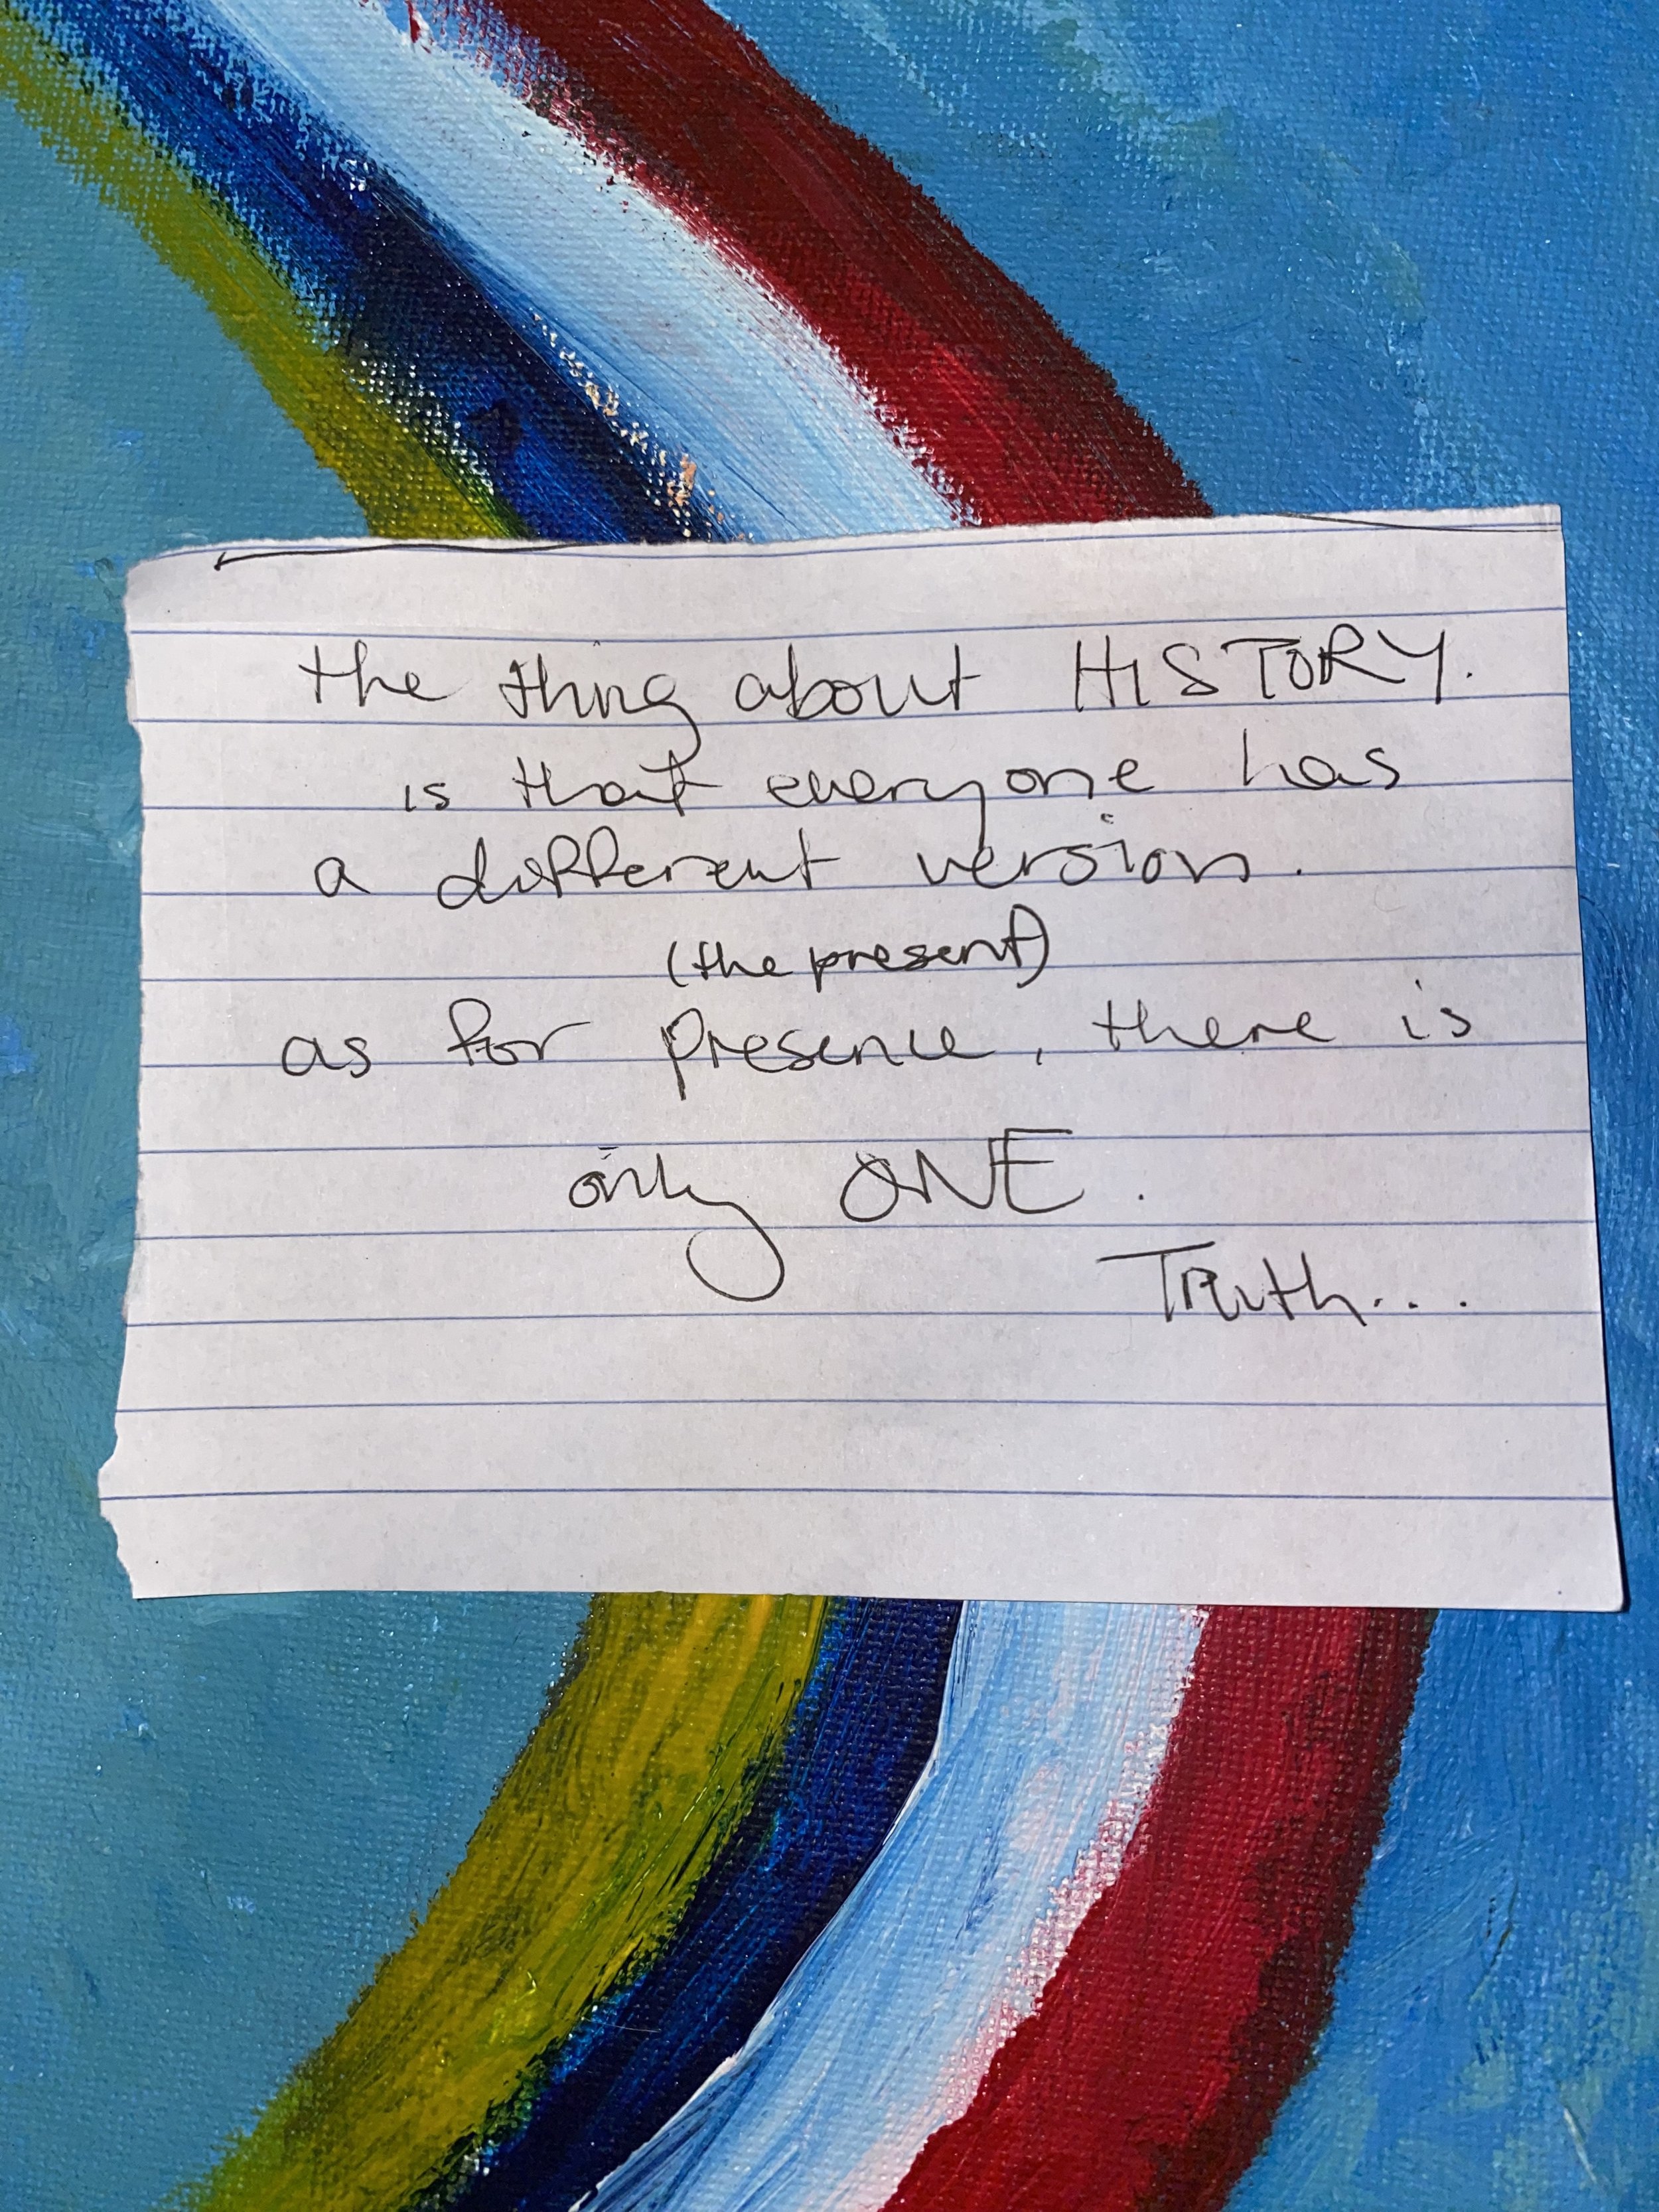 the thing about HISTORY.
is that everyone has
a different version.
(the present)
as for presence, there is
only ONE.
Truth...